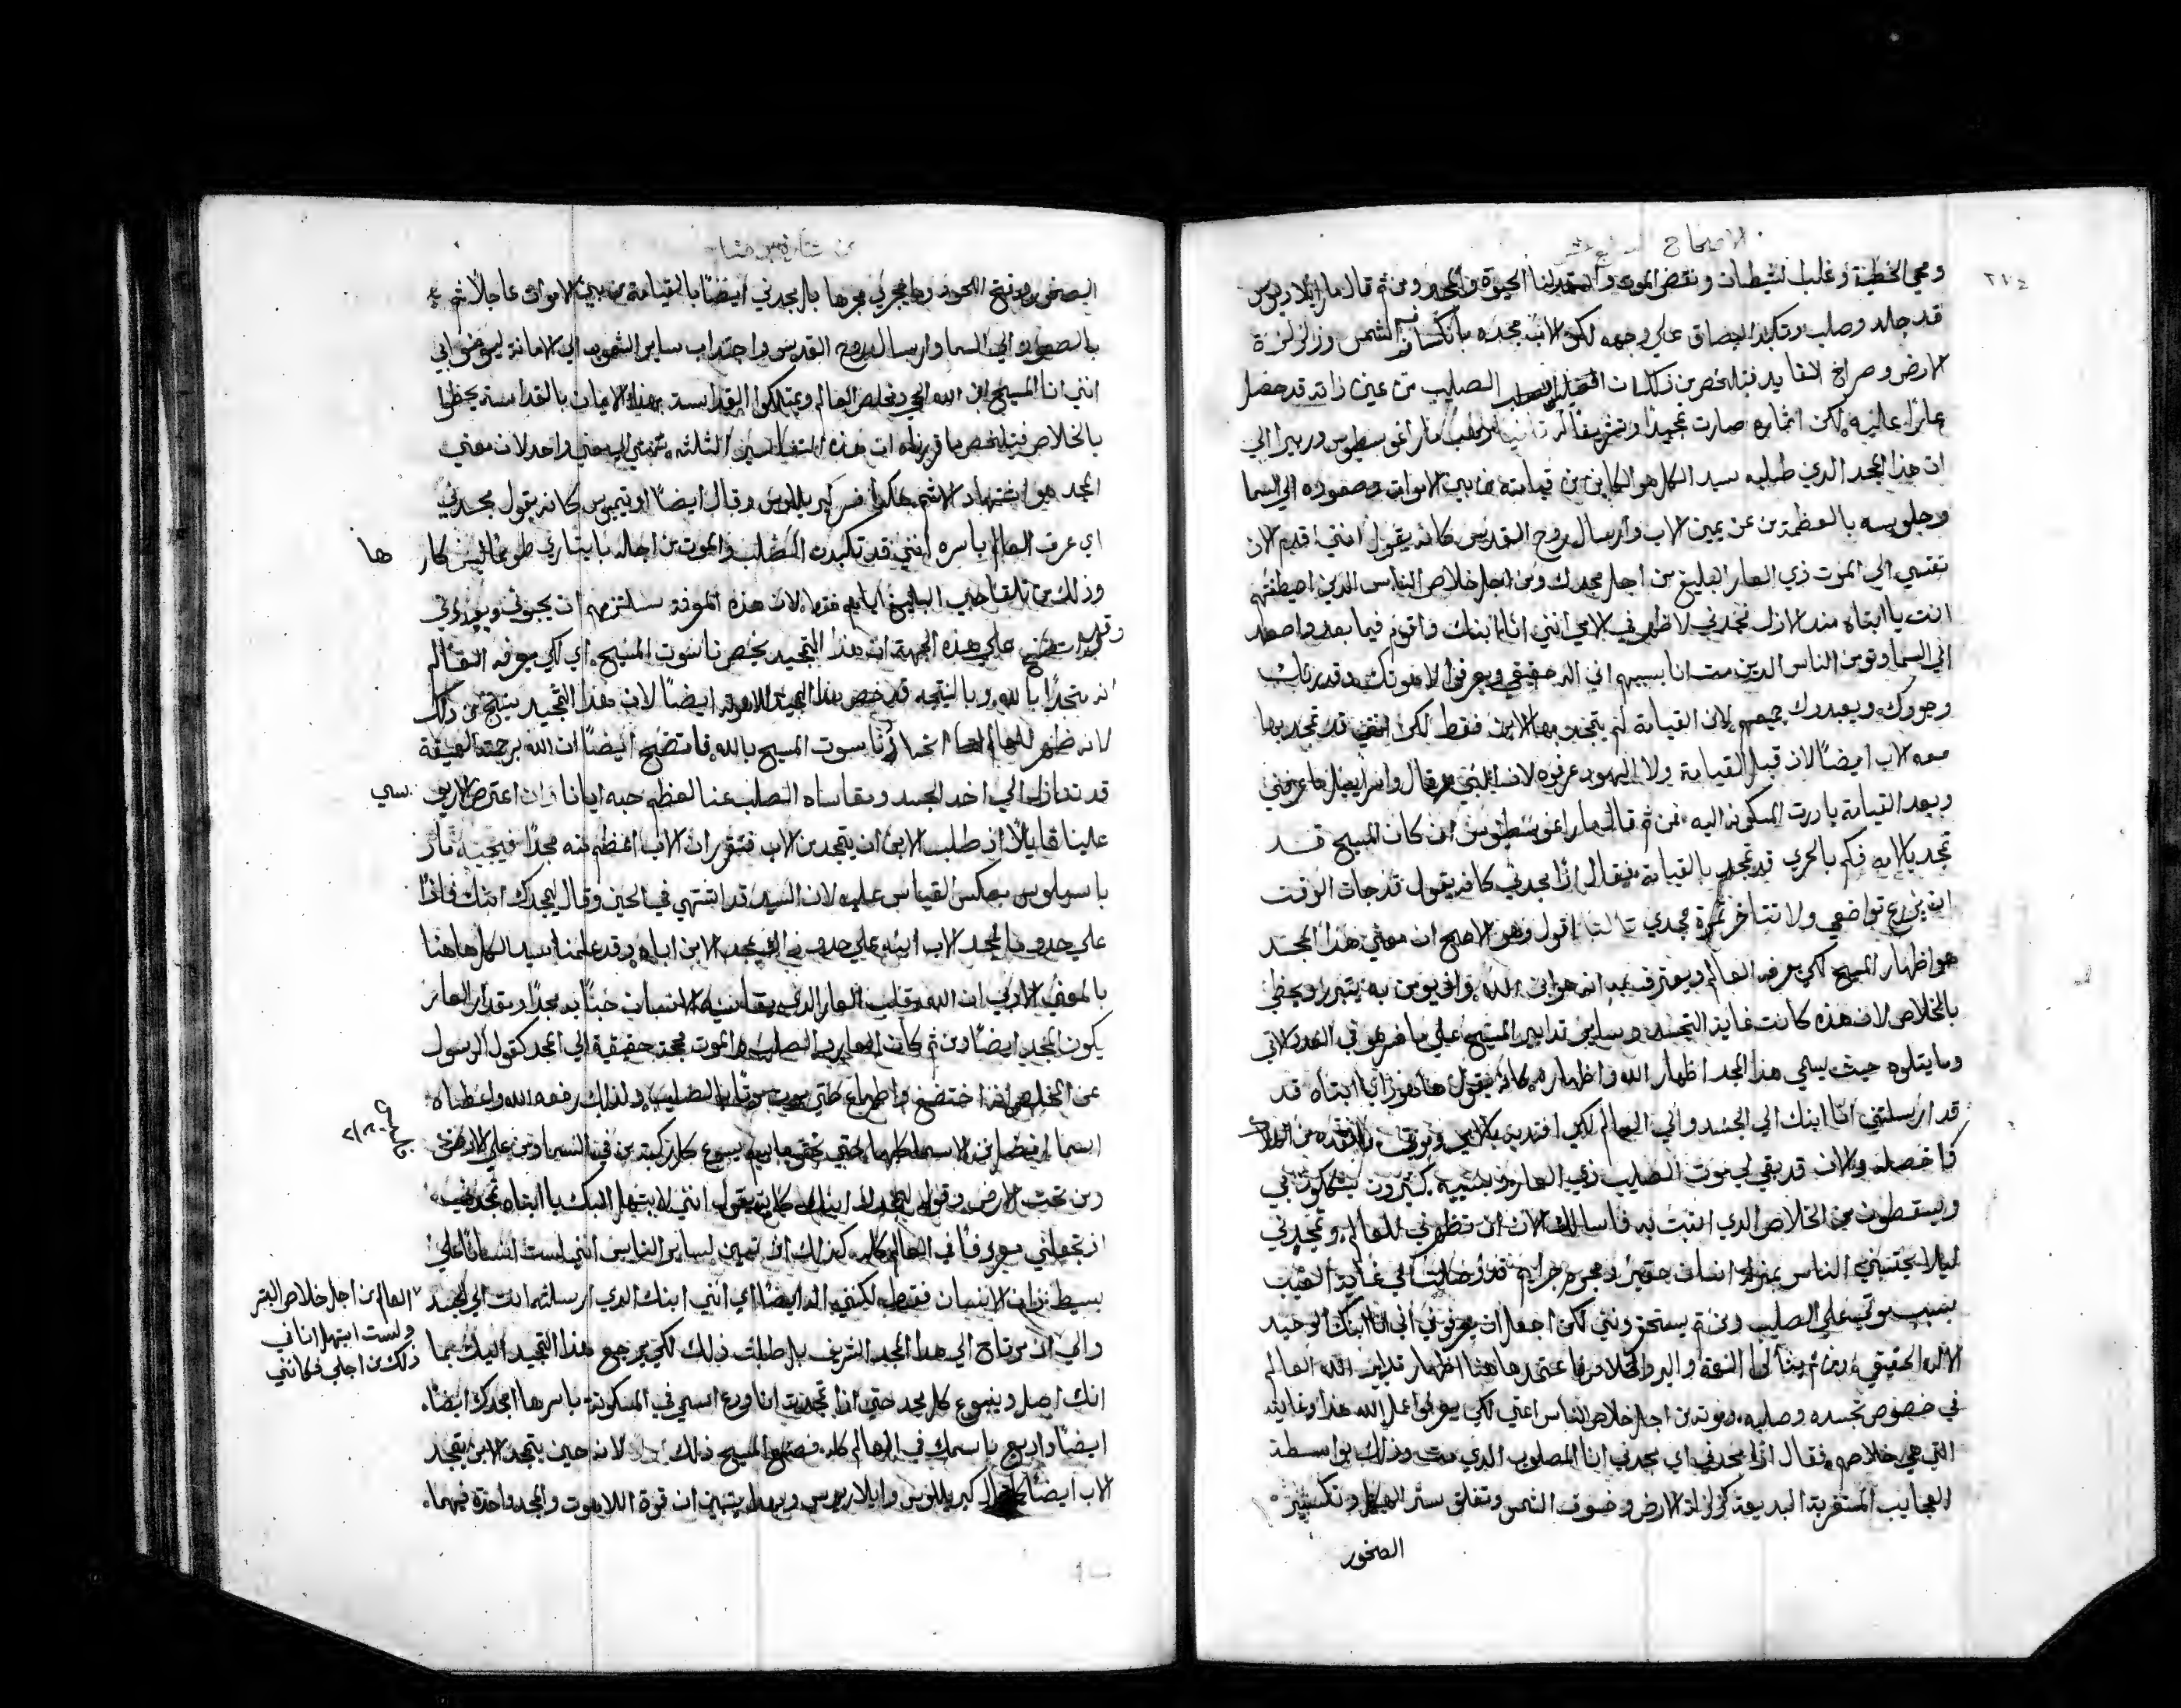 الاصحاح السابع عشر
٢٧٤
ومحي الخطية وغلب الشيطان ونقض الموت واستمد لنا الحيوة والمجد ومن ثم قال مار ايلاريوس
قد جلد وصلب وتكبد البصاق علي وجهه لكن الاب مجده بانكساف الشمس وزلزلة
الارض وصراخ القايد فتلخص من ذلك ان الصليب من عين ذاته قد حصل
عارًا عليه لكن اثماره صارت تمجيدًا وتشريفًا له ثانيا ذهب مار اغوسطينوس وريبرا الي
ان هذا المجد الذي طلبه سيد الكل هو الكاين من قيامته من بين الاموات وصعوده الي السما
وجلوسه بالعظمة عن يمين الاب وارسال روح القدس كانه يقول انني اقدم الان
نفسي الي الموت ذي العار البليغ من اجل مجدك ومن اجل خلاص الناس الذين اصطفيتهم
انت يا ابتاه منذ الازل فمجدني لاظهر في الامي انني انا ابنك واقوم فيما بعد واصعد
الي السما وتومن الناس الذين مت انا بسببهم اني اله حقيقي ويعرفوا لاهوتك وقدرتك
وجودك ويعبدوك جميعهم لان القيامة لم يتمجد بها الابن فقط لكن قد تمجد بها
معه الاب ايضًا لان قبل القيامة ولا اليهود عرفوه لان النبي قال واسراييل ما عرفني
وبعد القيامة بادرت المسكونة اليه فمن ثم قال مار اغوسطينوس ان كان المسيح قد
تمجد بالامه فكم بالحري قد تمجد بالقيامة فقال اذًا مجدني كانه يقول قد جات الوقت
ان يزرع تواضعي ولا تتاخر ثمرة مجدي ثالثا اقول وهو الاصح ان معني هذا المجد
هو اظهار المسيح لكي يعرفه العالم ويعترف به انه هو ابن الله واذ يومن به يتبرر ويحظي
بالخلاص لان هذه كانت غاية التجسد وساير تدابير المسيح علي ما هو في العدد الاتي
وما يتلوه حيث يسمي هذا المجد اظهار الله واظهاره كانه يقول هاهوذا يا ابتاه قد
قد ارسلتني انا ابنك الي الجسد والي العالم لكي افتديه بالامي وموتي وانقذه من
فاخصله والان قد بقي لي موت الصليب ذي العار وبسببه كثيرون يشكون بي
ويسقطون من الخلاص الذي اتيت به فاسالك الان ان تظهرني للعالم وتمجدني
ليلا يحتسبني الناس بمنزلة انسان حقير ومجرم
بسبب موتي علي الصليب ومن ثم يستحقرونني لكن اجعل ان يعرفوني اني انا ابنك الوحيد
الاله الحقيقي ومن ثم ينالوا النعمة والبر والخلاص فاعتمد هاهنا اظهار تدابير الله العالم
في خصوص تجسده وصلبه وموته من اجل خلاص الناس اعني لكي يعرفوا عمل الله هذا وغايته
التي هي خلاصهم فقال اذًا مجدني اي مجدني انا المصلوب الذي مت وذلك بواسطة
العجايب المستغربة البديعة كزلزلة الارض وخسوف الشمس وتفلق ستر الهيكل وتكسير
الصخور
من بشارة يوحنا
الصخور وفتح اللحود وما يجري مجرها بل مجدني ايضًا بالقيامة من بين الاموات عاجلًا ثم
بالصعود الي السما وارسال روح القدس واجتذاب ساير الشعوب الي الامانة ليومنوا بي
انني انا المسيح ابن الله الحي ومخلص العالم ويمتلكوا القداسة بهذا الايمان بالقداسة يحظوا
بالخلاص فتلخص ما قررناه ان هذه التفاسير الثلثة تمضي الي معني واحد لان معني
المجد هو اشتهاد الاسم هكذا فسر كيرللوس وقال ايضًا اوتيميوس كانه يقول مجدني
اي عرف العالم باسره انني قد تكبدت الصلب والموت من اجله باختياري طوعًا ليس كارها
وذلك من تلقا حبي البليغ اياهم فقط لان هذه المعرفة ستلزمهم ان يحبوني ويعبدوني
وقد اتضح علي هذه الجهة ان هذا التمجيد يخص ناسوت المسيح اي لكي يعرفه العالم
انه متحدًا بالله وبالنتيجة قد خص هذا التمجيد لاهوته ايضًا لان هذا التمجيد ينتج من ذلك
لانه ظهر للعالم اتحاد ناسوت المسيح بالله فاتضح ايضًا ان الله برحمته العميقة
قد تنازل الي اخذ الجسد ومقاساة الصلب عنا لعظم حبه ايانا وان اعترض الاريوسي
علينا قايلًا اذ طلب الابن ان يتمجد من الاب فتقرر ان الاب اعظم منه مجدًا فيجيبه مار
باسيليوس بعكس القياس عليه لان السيد قد اشتهي في الحين وقال ليمجدك ابنك فاذًا
علي حدو ما مجد الاب ابنه علي حدو ذلك يمجد الابن اباه وقد علمنا سيد الكل هاهنا
بالمعني الادبي ان الله يقلب العار الذي يقاسيه الانسان حبًا به مجدًا وبقدار العار
يكون المجد ايضًا ومن ثم كان العار والصلب والموت محجة حقيقية الي المجد كقول الرسول
عن المخلص اذا اختضع واطاع حتي الموت موت الصليب ولذلك رفعه الله واعطاه
اسما افضل من الاسما كلها حتي تحني باسم يسوع كل ركبة من في السما ومن علي الارض
ومن تحت الارض وقوله ليمجدك ابنك كانه يقول انني لا ابتهل اليك يا ابتاه تمجدني
اذ تجعلني معروفًا في العالم كله كذلك ان تبين لساير الناس انني لست انسانًا علي
بسيط ذات الانسان فقط لكنني اله ايضًا اي انني ابنك الذي ارسلته انت الي الجسد
العالم من اجل خلاص البشر
ولست ابتهل انا في
ذلك من اجلي فكانني
والي ان مرتاح الي هذا المجد الشريف بل طلبت ذلك لكي يرجع هذا التمجيد اليك بما
انك اصل وينبوع كل مجد حتي اذا تمجدت انا وذع اسمي في المسكونة باسرها امجدك ايضًا
ايضًا واذيع باسمك في العالم كله فصنع المسيح ذلك لانه حين يتمجد الابن يتمجد
الاب ايضًا كيرللوس وايلاريوس وبهذا يتبين ان قوة اللاهوت والمجد واحدة فيهما